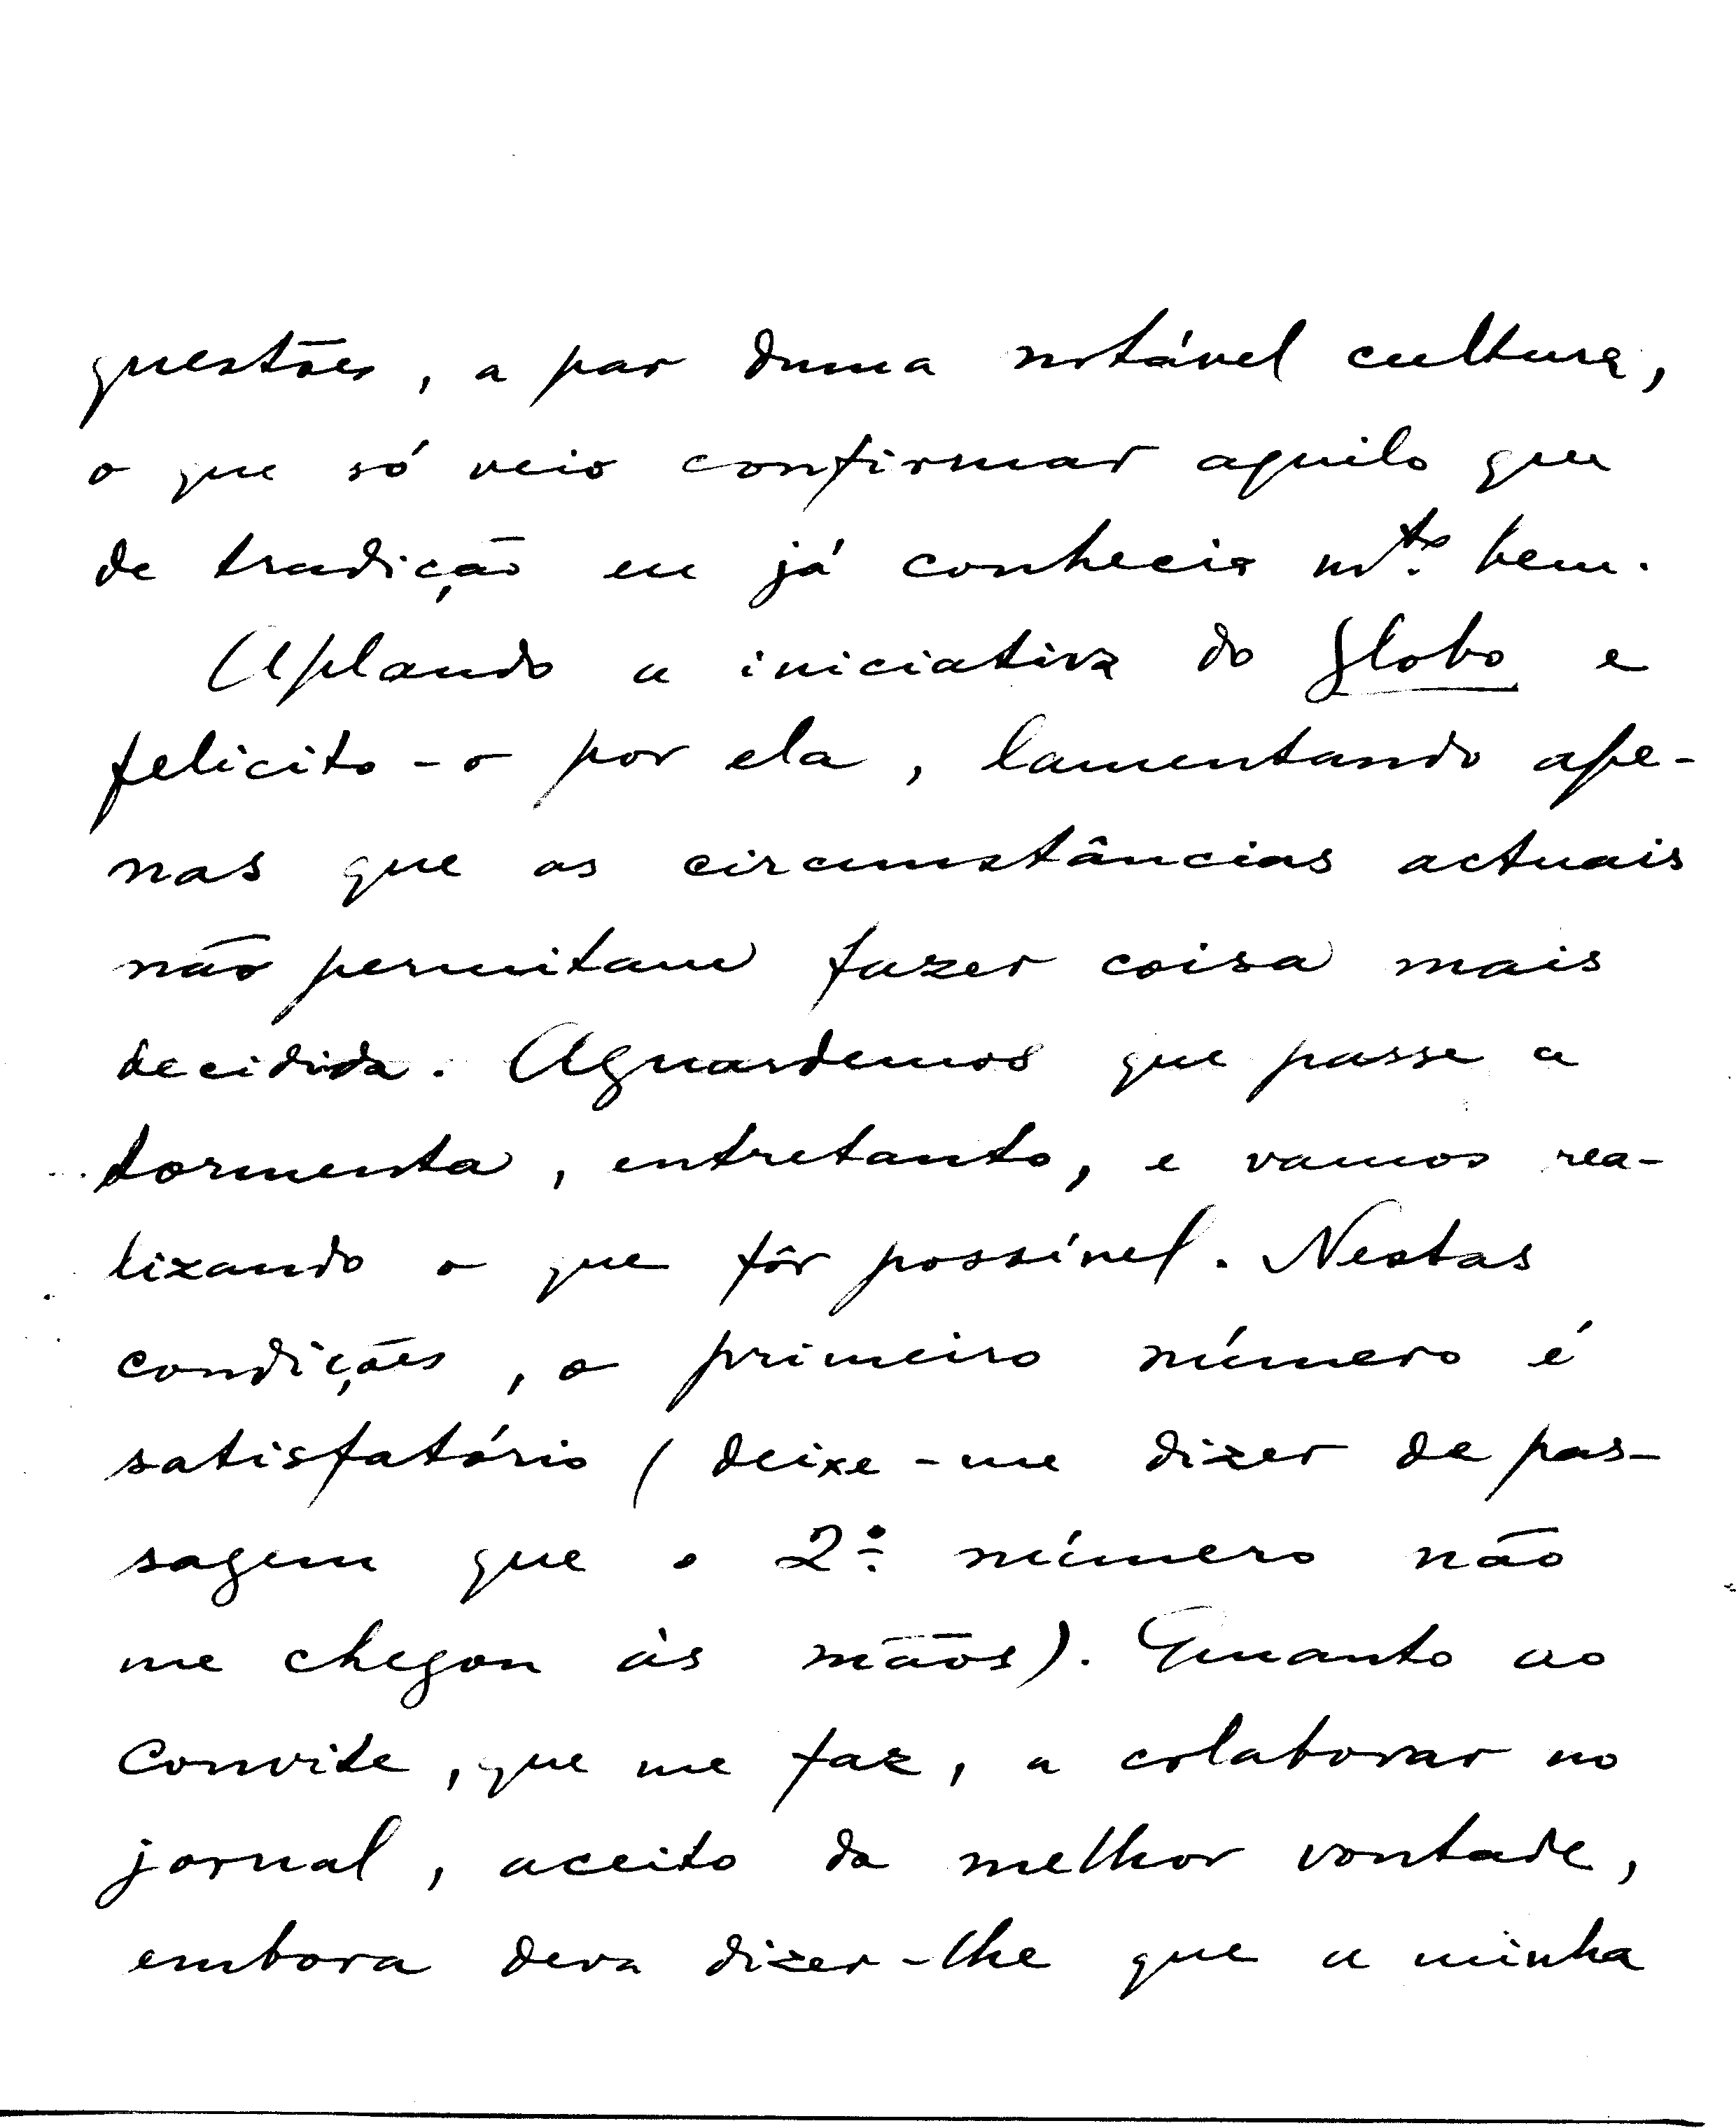 questões, a par duma notável cultura,
o que só veio confirmar aquilo que
de tradição eu já conhecia mto. bem.
Aplaudo a iniciativa do Globo e
felicito-o por ela, lamentando ape-
nas que as circunstâncias actuais
não permitam fazer coisa mais
decidida. Aguardemos que passe a
tormenta, entretanto, e vamos rea-
lizando o que fôr possível. Nestas
condições, o primeiro número é
satisfatório (deixe-me dizer de pas-
sagem que o 2º número não
me chegou às mãos). Quanto ao
convite, que me faz, a colaborar no
jornal, aceito da melhor vontade,
embora deva dizer-lhe que a minha